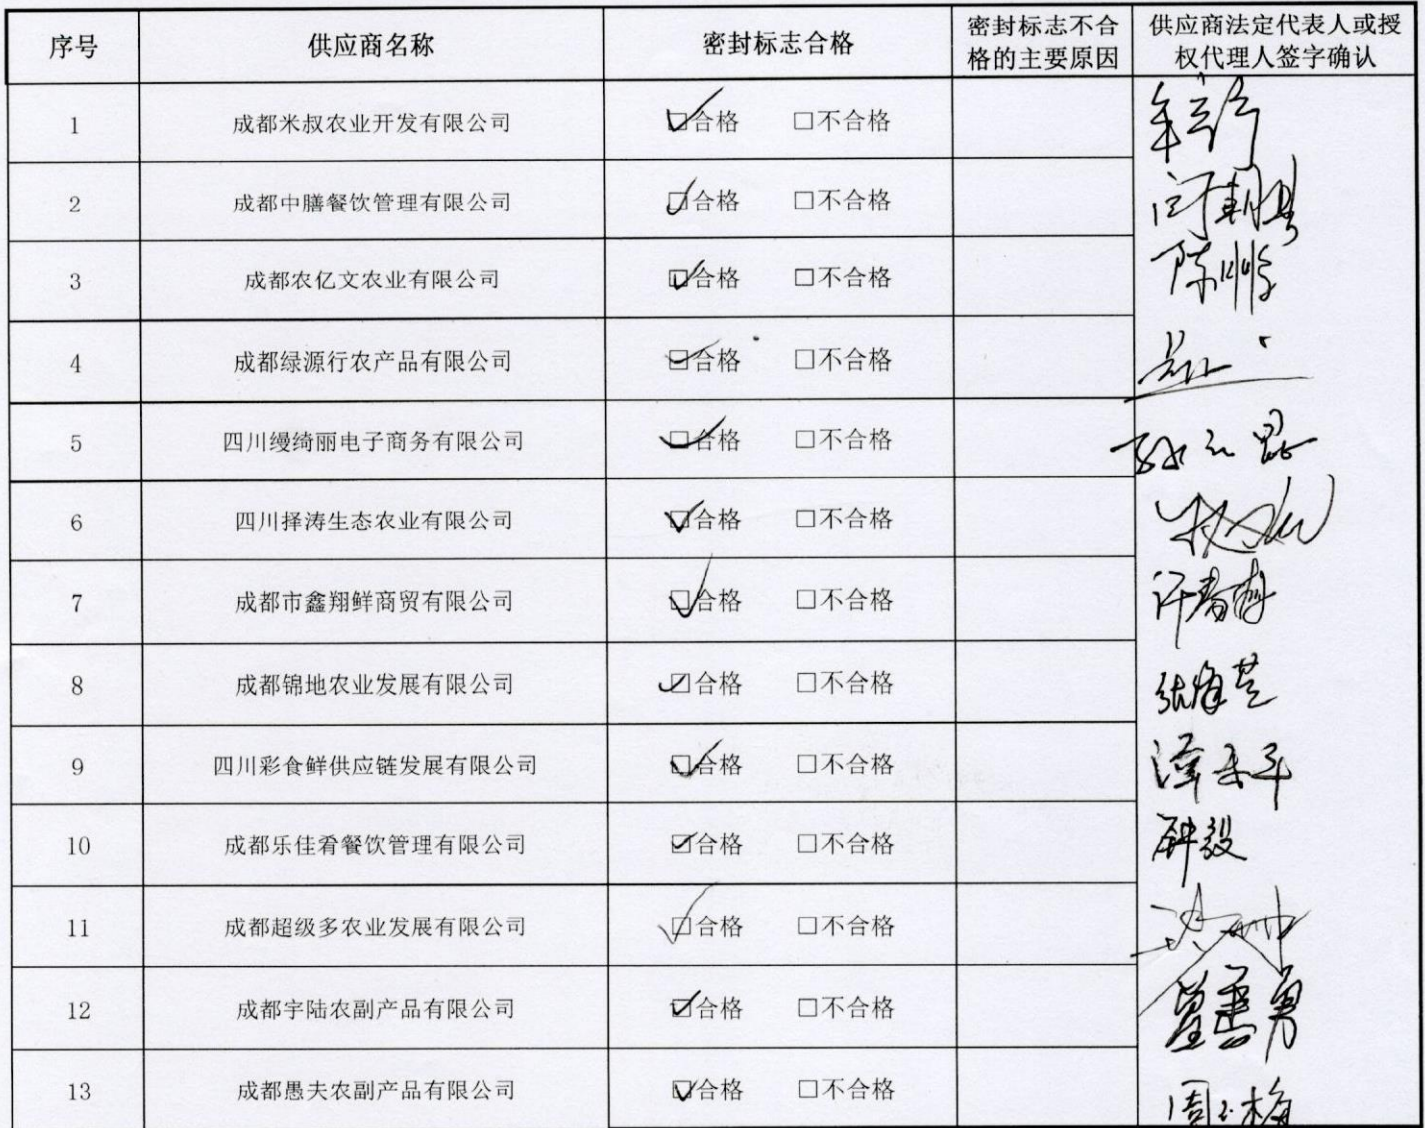 序号 供应商名称 密封标志合格 密封标志不合格的主要原因 供应商法定代表人或授权代理人签字确认
1 成都米叔农业开发有限公司 ☑合格 □不合格
2 成都中膳餐饮管理有限公司 ☑合格 □不合格
3 成都农亿文农业有限公司 ☑合格 □不合格
4 成都绿源行农产品有限公司 ☑合格 □不合格
5 四川缦绮丽电子商务有限公司 ☑合格 □不合格
6 四川择涛生态农业有限公司 ☑合格 □不合格
7 成都市鑫翔鲜商贸有限公司 ☑合格 □不合格
8 成都锦地农业发展有限公司 ☑合格 □不合格
9 四川彩食鲜供应链发展有限公司 ☑合格 □不合格
10 成都乐佳肴餐饮管理有限公司 ☑合格 □不合格 钟毅
11 成都超级多农业发展有限公司 ☑合格 □不合格
12 成都宇陆农副产品有限公司 ☑合格 □不合格
13 成都愚夫农副产品有限公司 ☑合格 □不合格